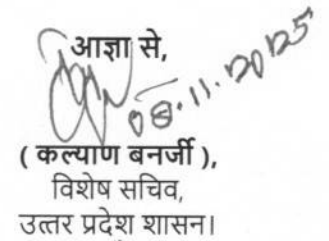 आज्ञा से,
08.11.2025
( कल्याण बनर्जी ),
विशेष सचिव,
उत्तर प्रदेश शासन।